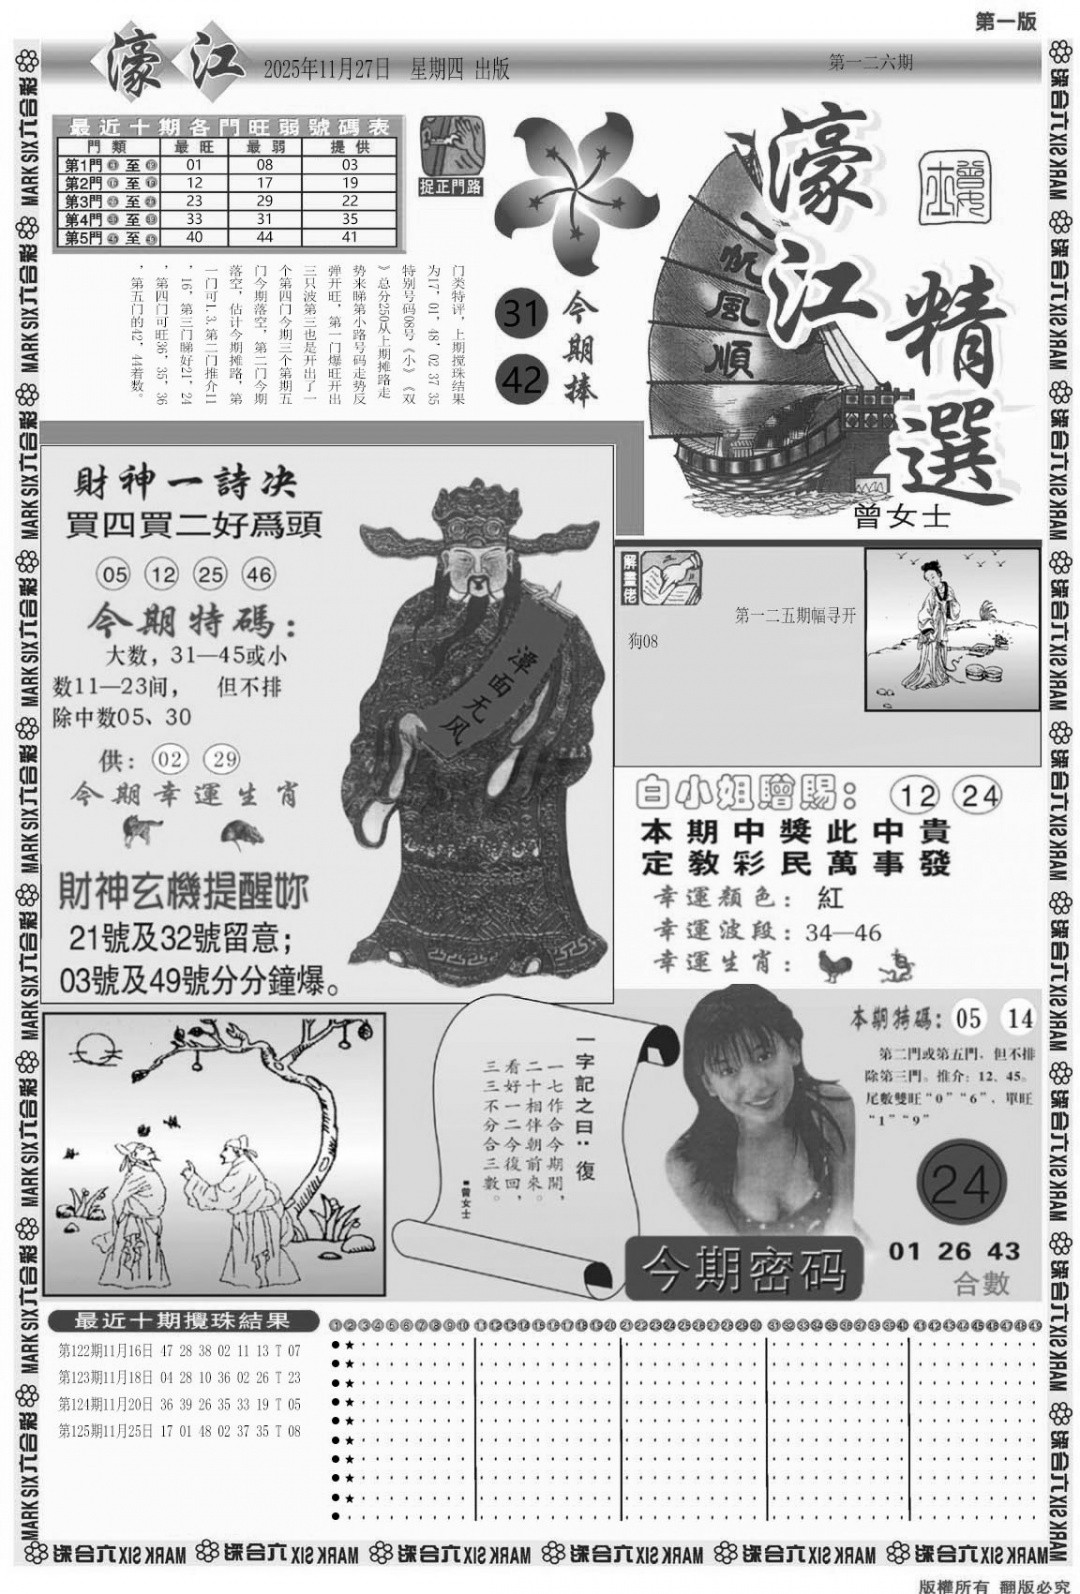 第一版
濠江
2025年11月27日 星期四 出版
第一二六期
最近十期各門旺弱號碼表
門類 最旺 最弱 提供
第1門 至 01 08 03
第2門 至 12 17 19
第3門 至 23 29 22
第4門 至 33 31 35
第5門 至 40 44 41
捉正門路
门类特评，上期搅珠结果
为17，01，48，02 37 35
特别号码08号《小》《双
》总分250从上期摊路走
势来睇第小路号码走势反
弹开旺，第一门爆旺开出
三只波第三也是开出了一
个第四门今期三个第期五
门今期落空，第二门今期
落空，估计今期摊路，第
一门可1.3.第二门推介11
，16，第三门睇好21，24
，第四门可旺36，35，36
，第五门的42，44着数。
31
42
今期捧
一帆風順
濠江
精選
曾女士
財神一詩决
買四買二好爲頭
05 12 25 46
今期特碼：
大数，31—45或小
数11—23间， 但不排
除中数05、30
供：02 29
今期幸運生肖
財神玄機提醒妳
21號及32號留意；
03號及49號分分鐘爆。
潭面无风
第一二五期幅寻开
狗08
白小姐贈賜：12 24
本期中獎此中貴
定教彩民萬事發
幸運顏色：紅
幸運波段：34—46
幸運生肖：
一字記之曰：復
一七作合今期開，
二十相伴朝前來。
看好一二今復回，
三三不分合三數。
■曾女士
本期特碼：05 14
第二門或第五門，但不排
除第三門。推介：12、45。
尾數雙旺“0”“6”、單旺
“1”“9”
24
今期密码
01 26 43
合數
最近十期攪珠結果
①②③④⑤⑥⑦⑧⑨⑩⑪⑫⑬⑭⑮⑯⑰⑱⑲⑳㉑㉒㉓㉔㉕㉖㉗㉘㉙㉚㉛㉜㉝㉞㉟㊱㊲㊳㊴㊵㊶㊷㊸㊹㊺㊻㊼㊽49
第122期11月16日 47 28 38 02 11 13 T 07
第123期11月18日 04 28 10 36 02 26 T 23
第124期11月20日 36 39 26 35 33 19 T 05
第125期11月25日 17 01 48 02 37 35 T 08
MARK SIX六合彩 MARK SIX六合彩 MARK SIX六合彩 MARK SIX六合彩 MARK SIX六合彩 MARK SIX六合彩
版權所有 翻版必究